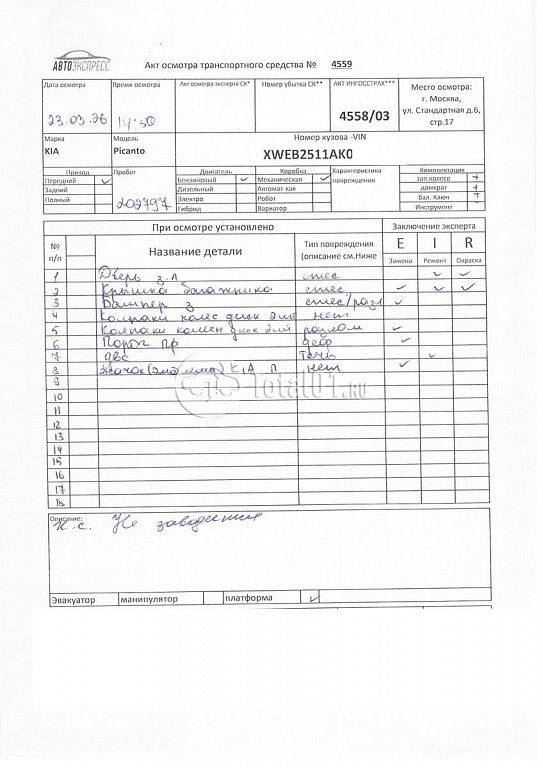 АВТОЭКСПРЕСС
Акт осмотра транспортного средства № 4559
Дата осмотра Время осмотра Акт осмотра эксперта СК* Номер убытка СК** АКТ ИНГОССТРАХ*** Место осмотра:
г. Москва,
ул. Стандартная д.6,
стр.17
23.03.26 14:50 4558/03
Марка Модель Номер кузова -VIN
KIA Picanto XWEB2511AK0
Привод Пробег Двигатель Коробка Характеристика повреждения Комплектация
Передний ✓ Бензиновый ✓ Механическая ✓ зап.колесо +
Задний Дизельный Автомат-кая домкрат +
Полный Электро Робот бал. Ключ +
202797 Гибрид Вариатор Инструмент
При осмотре установлено Заключение эксперта
№ п/п Название детали Тип повреждения (описание см.Ниже E I R
Замена Ремонт Окраска
1 Дверь з.л смес ✓ ✓
2 Крышка багажника смес ✓ ✓ ✓
3 Бампер з смес/разл ✓
4 Колпаки колес диск нет
5 Колпаки колеси диск разлом ✓
6 Порог пр деф ✓
7 двс течь ✓
8 значок (эмблема) KIA п нет ✓
9
10
11
12
13
14
15
16
17
18
Total01.RU
Описание:
н.с. Не заводится
Эвакуатор манипулятор платформа ✓